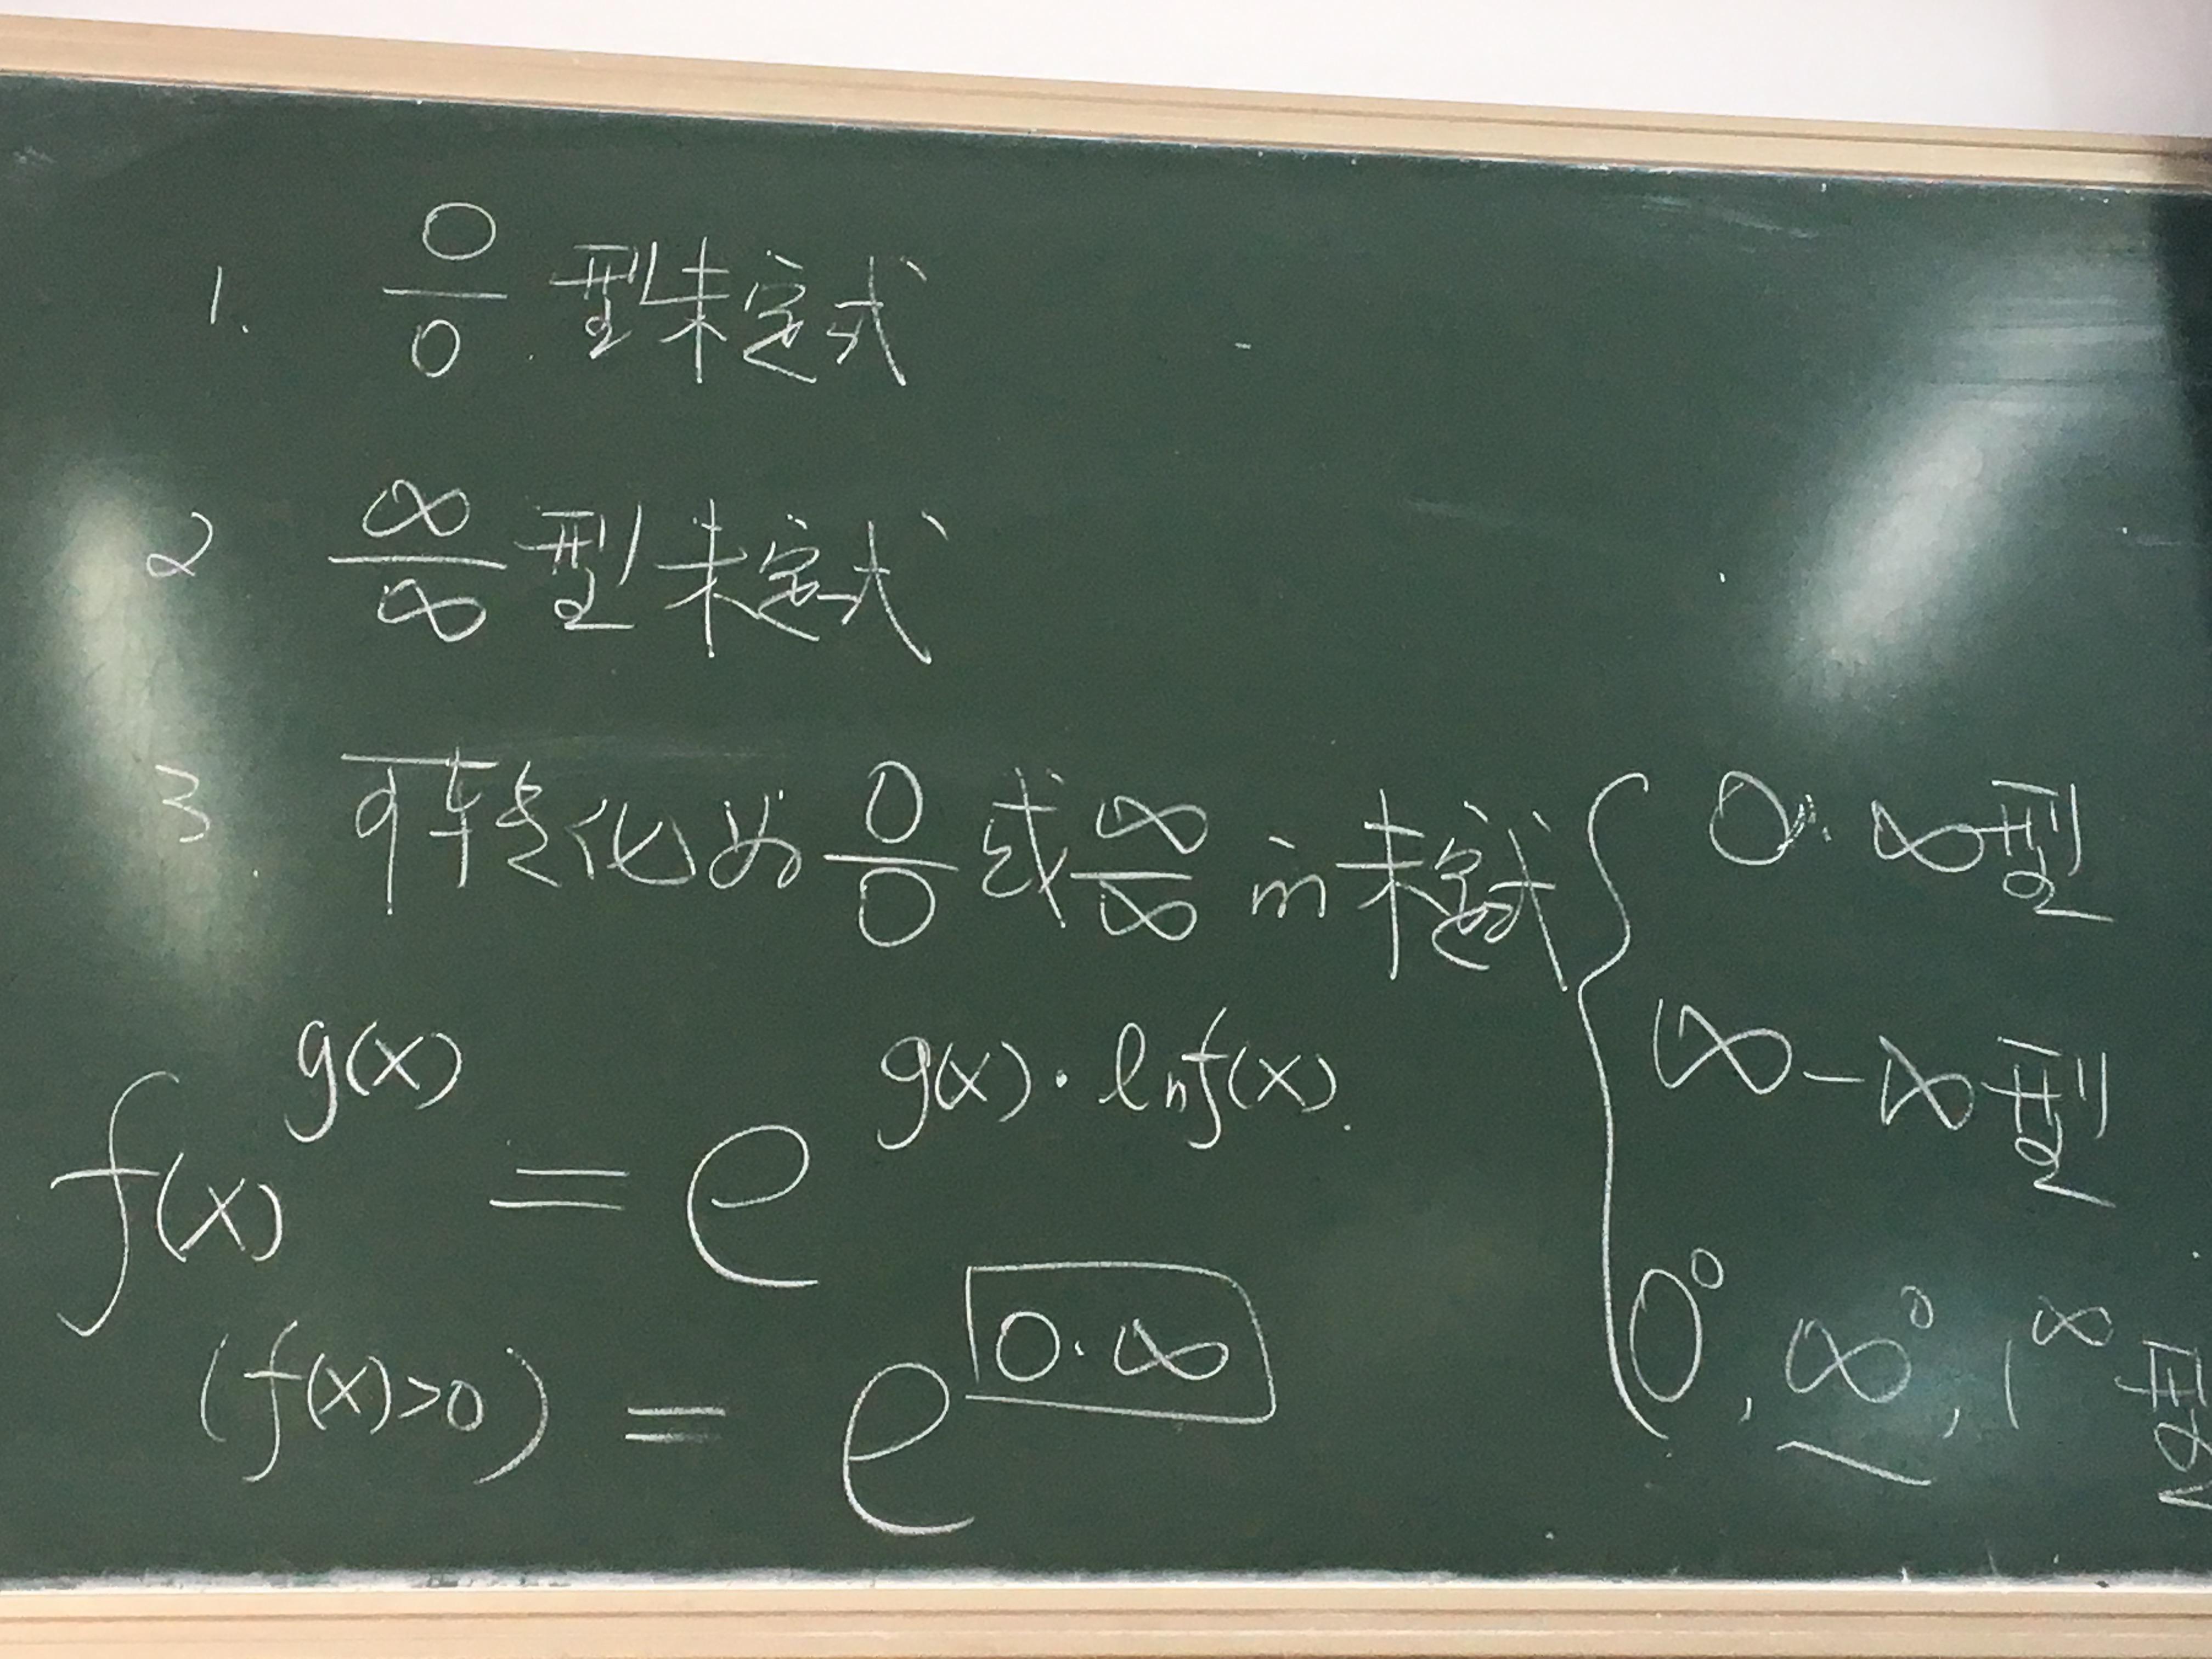 1. 0/0 型未定式
2 ∞/∞ 型未定式
3 可转化为 0/0 或 ∞/∞ 的未定式 { 0·∞型
∞-∞型
0⁰, ∞⁰, 1^∞ 型
f(x)^g(x) = e^g(x)·lnf(x).
(f(x)>0) = e^0·∞